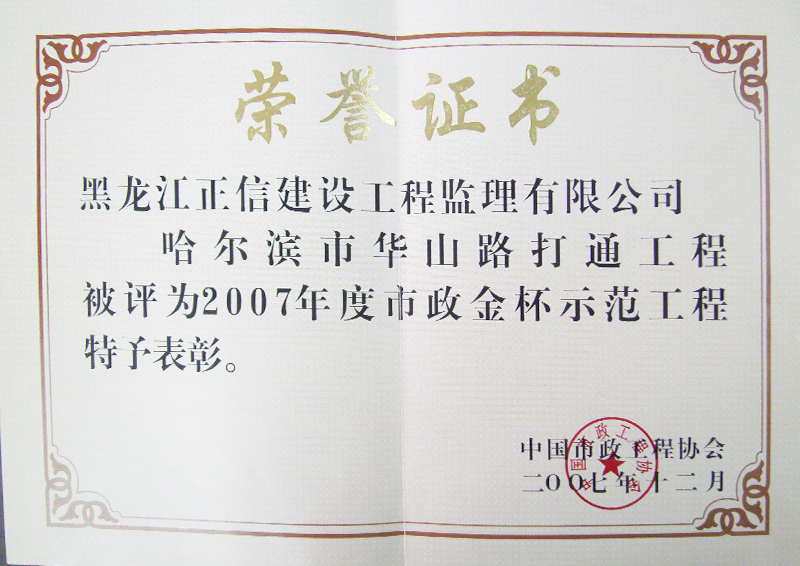 荣誉证书
黑龙江正信建设工程监理有限公司
哈尔滨市华山路打通工程
被评为2007年度市政金杯示范工程
特予表彰。
中国市政工程协会
二〇〇七年十二月
中国市政工程协会